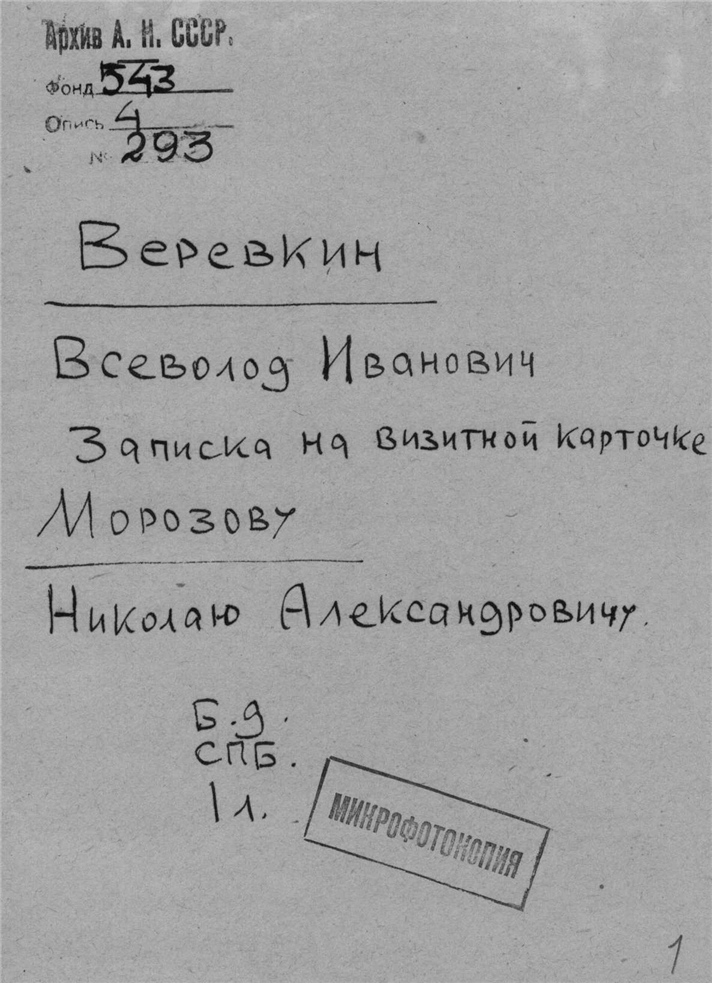 Архив А. Н. СССР.
Фонд 543
Опись 4
№ 293
Веревкин
Всеволод Иванович
Записка на визитной карточке
Морозову
Николаю Александровичу.
Б.д.
СПБ.
1 л.
МИКРОФОТОКОПИЯ
1